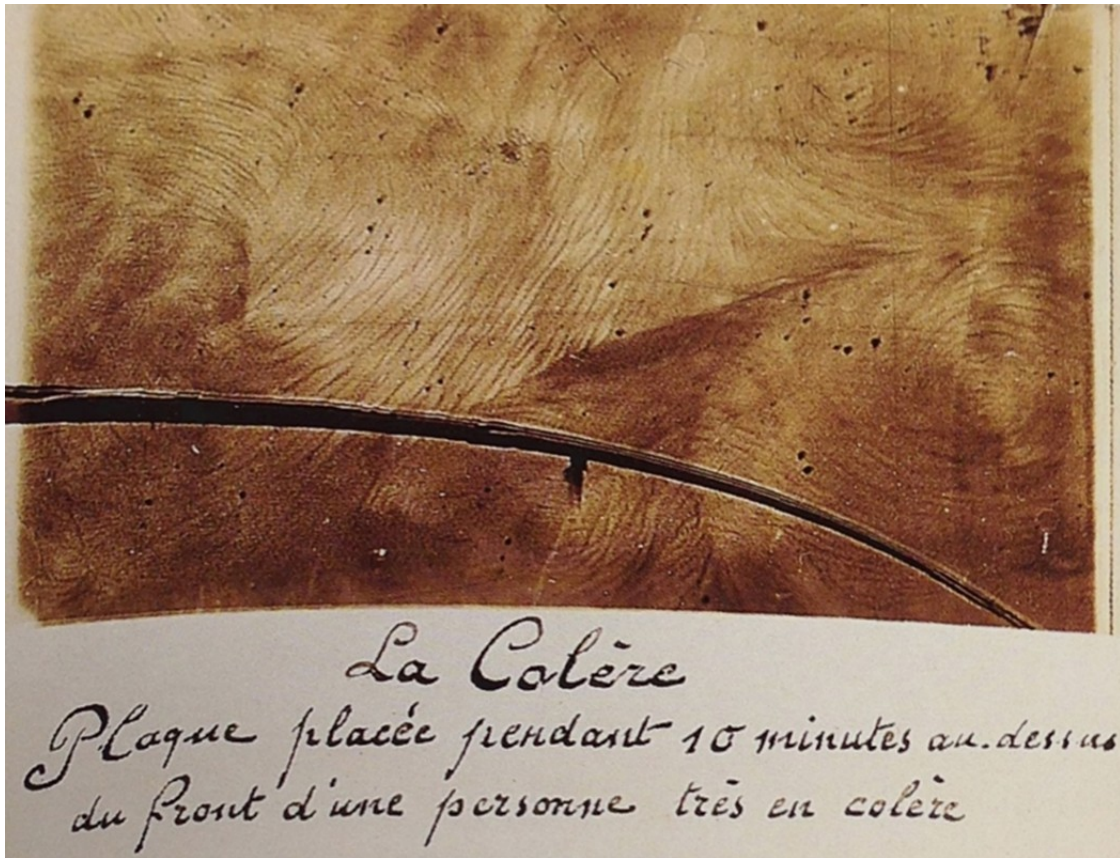 La Colère
Plaque placée pendant 10 minutes au-dessus
du front d'une personne très en colère